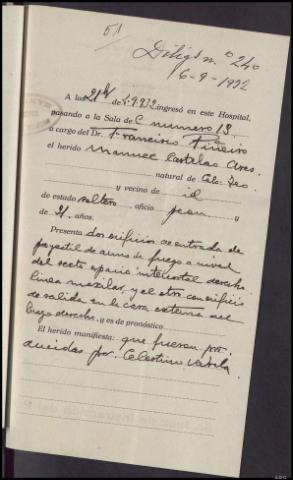 51
Diligs n.º 240
6-9-1932
A las 21 h de 5-9-932 ingresó en este Hospital,
pasando a la Sala de C número 18,
a cargo del Dr. Francisco Piñeiro
el herido Manuel Castelao Ares.
natural de
y vecino de id
de estado soltero, oficio peon y
de 21 años.
Presenta dos orificios de entrada de
proyectil de arma de fuego a nivel
del sexto espacio intercostal derecho
linea maxilar, y el otro con orificio
de salida en la cara externa del
brazo derecho, y es de pronóstico
El herido manifiesta: que fueron pro-
ducidas por Celestino Varela.